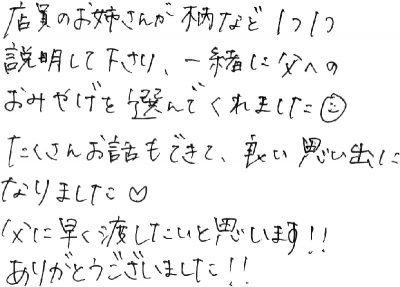 店員のお姉さんが柄など1つ1つ
説明して下さり、一緒に父への
おみやげを選んでくれました☺
たくさんお話もできて、良い思い出に
なりました♡
父に早く渡したいと思います!!
ありがとうございました!!